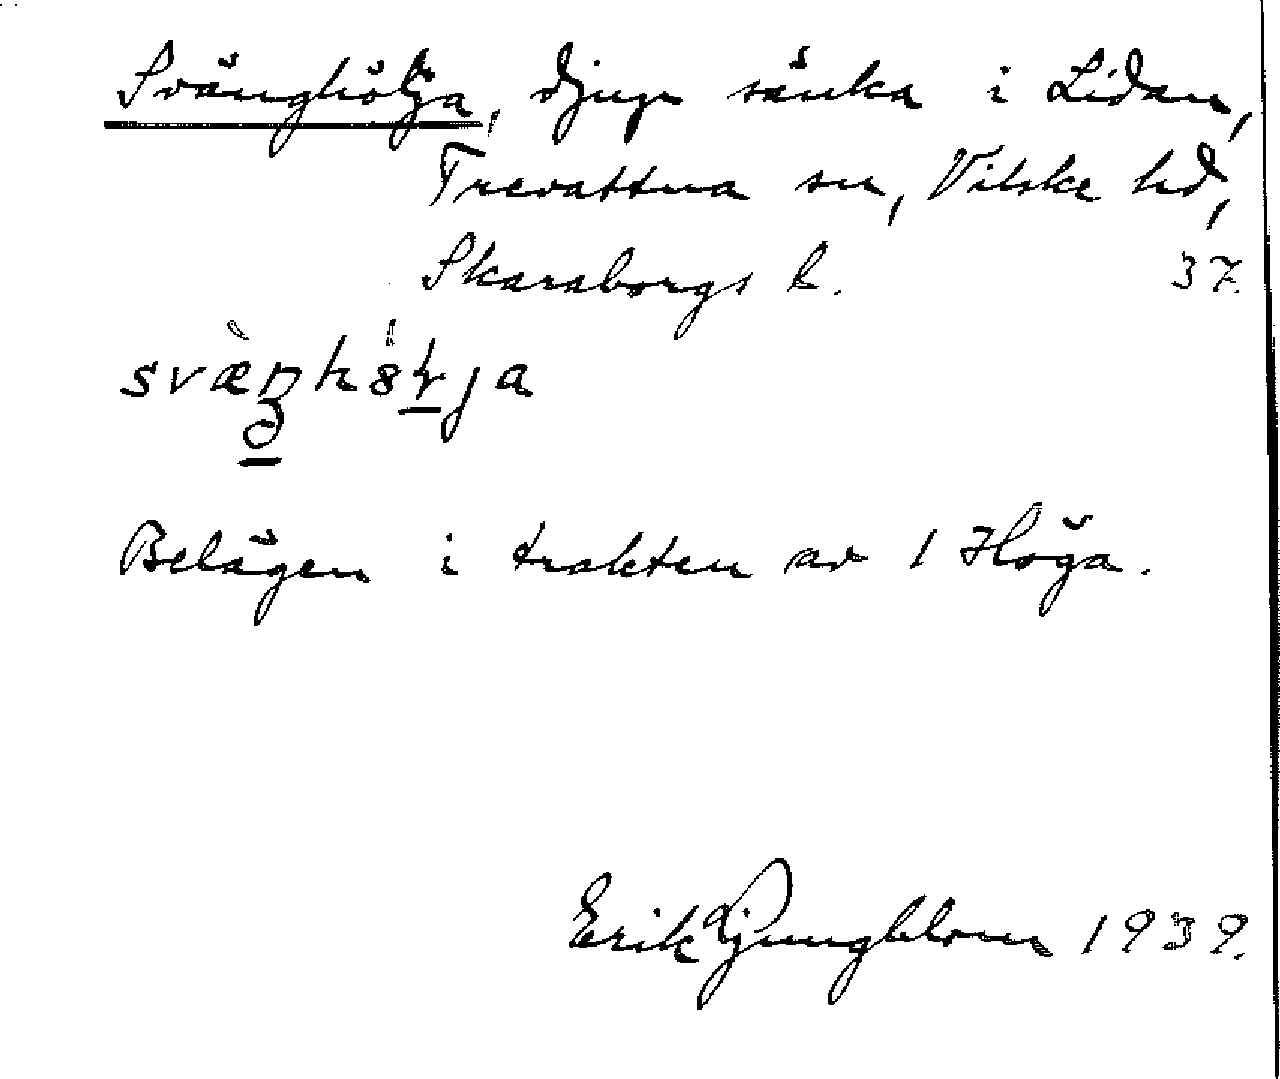 Svänghölja, djup sänka i Lidan,
Trevattna sn, Vilske hd,
Skaraborgs l. 37.
Belägen i trakten av 1 Höga.
Erik Ljungblom 1939.